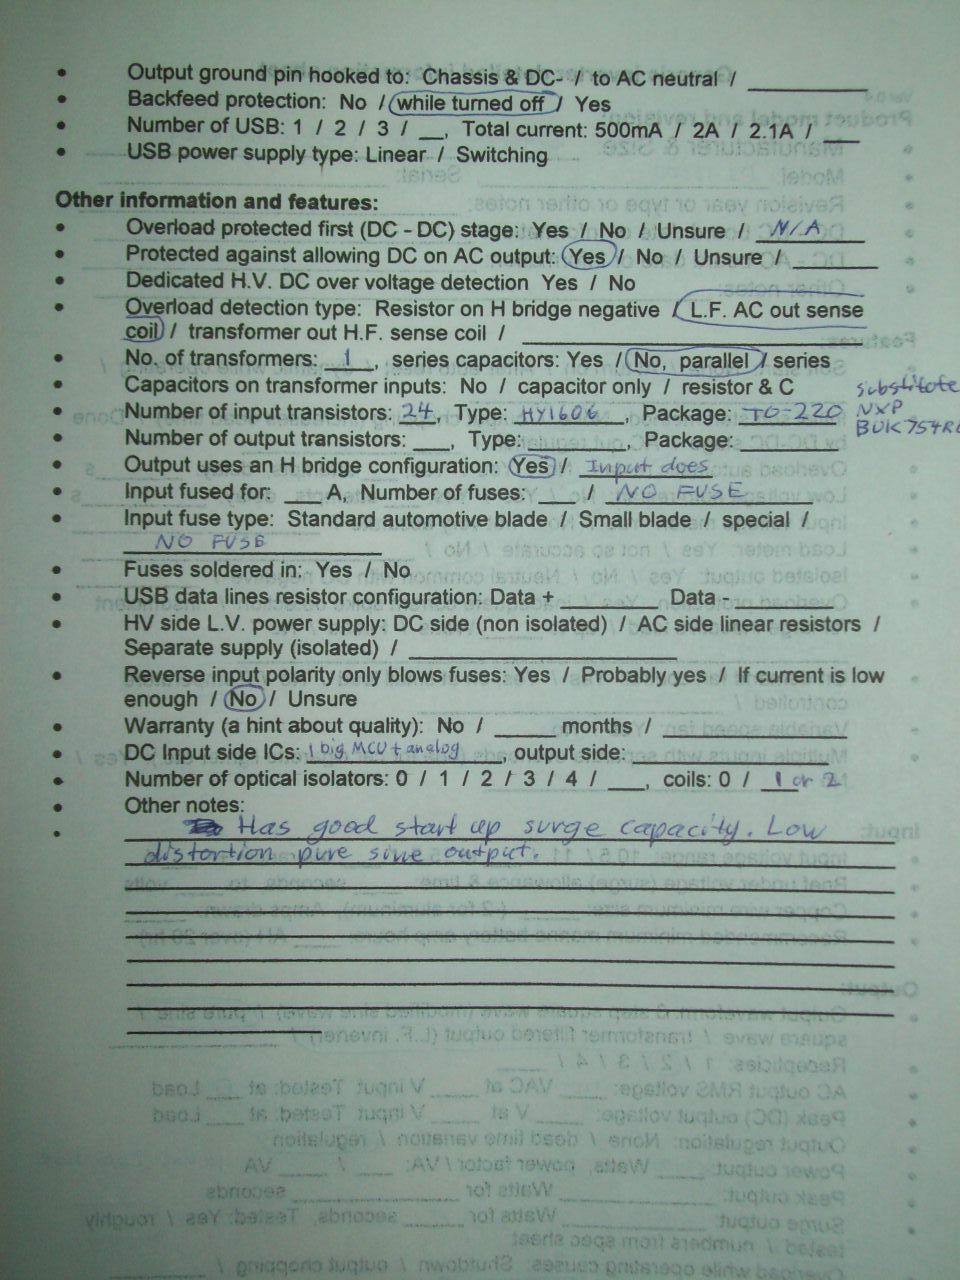 • Output ground pin hooked to: Chassis & DC- / to AC neutral / ____
• Backfeed protection: No / while turned off / Yes
• Number of USB: 1 / 2 / 3 / __, Total current: 500mA / 2A / 2.1A / ___
• USB power supply type: Linear / Switching
Other information and features:
• Overload protected first (DC - DC) stage: Yes / No / Unsure / N/A
• Protected against allowing DC on AC output: Yes / No / Unsure / ____
• Dedicated H.V. DC over voltage detection Yes / No
• Overload detection type: Resistor on H bridge negative / L.F. AC out sense
coil / transformer out H.F. sense coil / ____
• No. of transformers: 1, series capacitors: Yes / No, parallel / series
• Capacitors on transformer inputs: No / capacitor only / resistor & C
• Number of input transistors: 24, Type: HY1606, Package: TO-220
substitute
NXP
BUK754R
• Number of output transistors: ___, Type: ____, Package: ____
• Output uses an H bridge configuration: Yes / Input does
• Input fused for: ___ A, Number of fuses: ___ / NO FUSE
• Input fuse type: Standard automotive blade / Small blade / special /
NO FUSE
• Fuses soldered in: Yes / No
• USB data lines resistor configuration: Data + ____ Data - ____
• HV side L.V. power supply: DC side (non isolated) / AC side linear resistors /
Separate supply (isolated) / ____
• Reverse input polarity only blows fuses: Yes / Probably yes / If current is low
enough / No / Unsure
• Warranty (a hint about quality): No / ____ months / ____
• DC Input side ICs: 1 big MCU + analog, output side: ____
• Number of optical isolators: 0 / 1 / 2 / 3 / 4 / ___, coils: 0 / 1 or 2
• Other notes:
• Has good start up surge capacity. Low
distortion pure sine output.